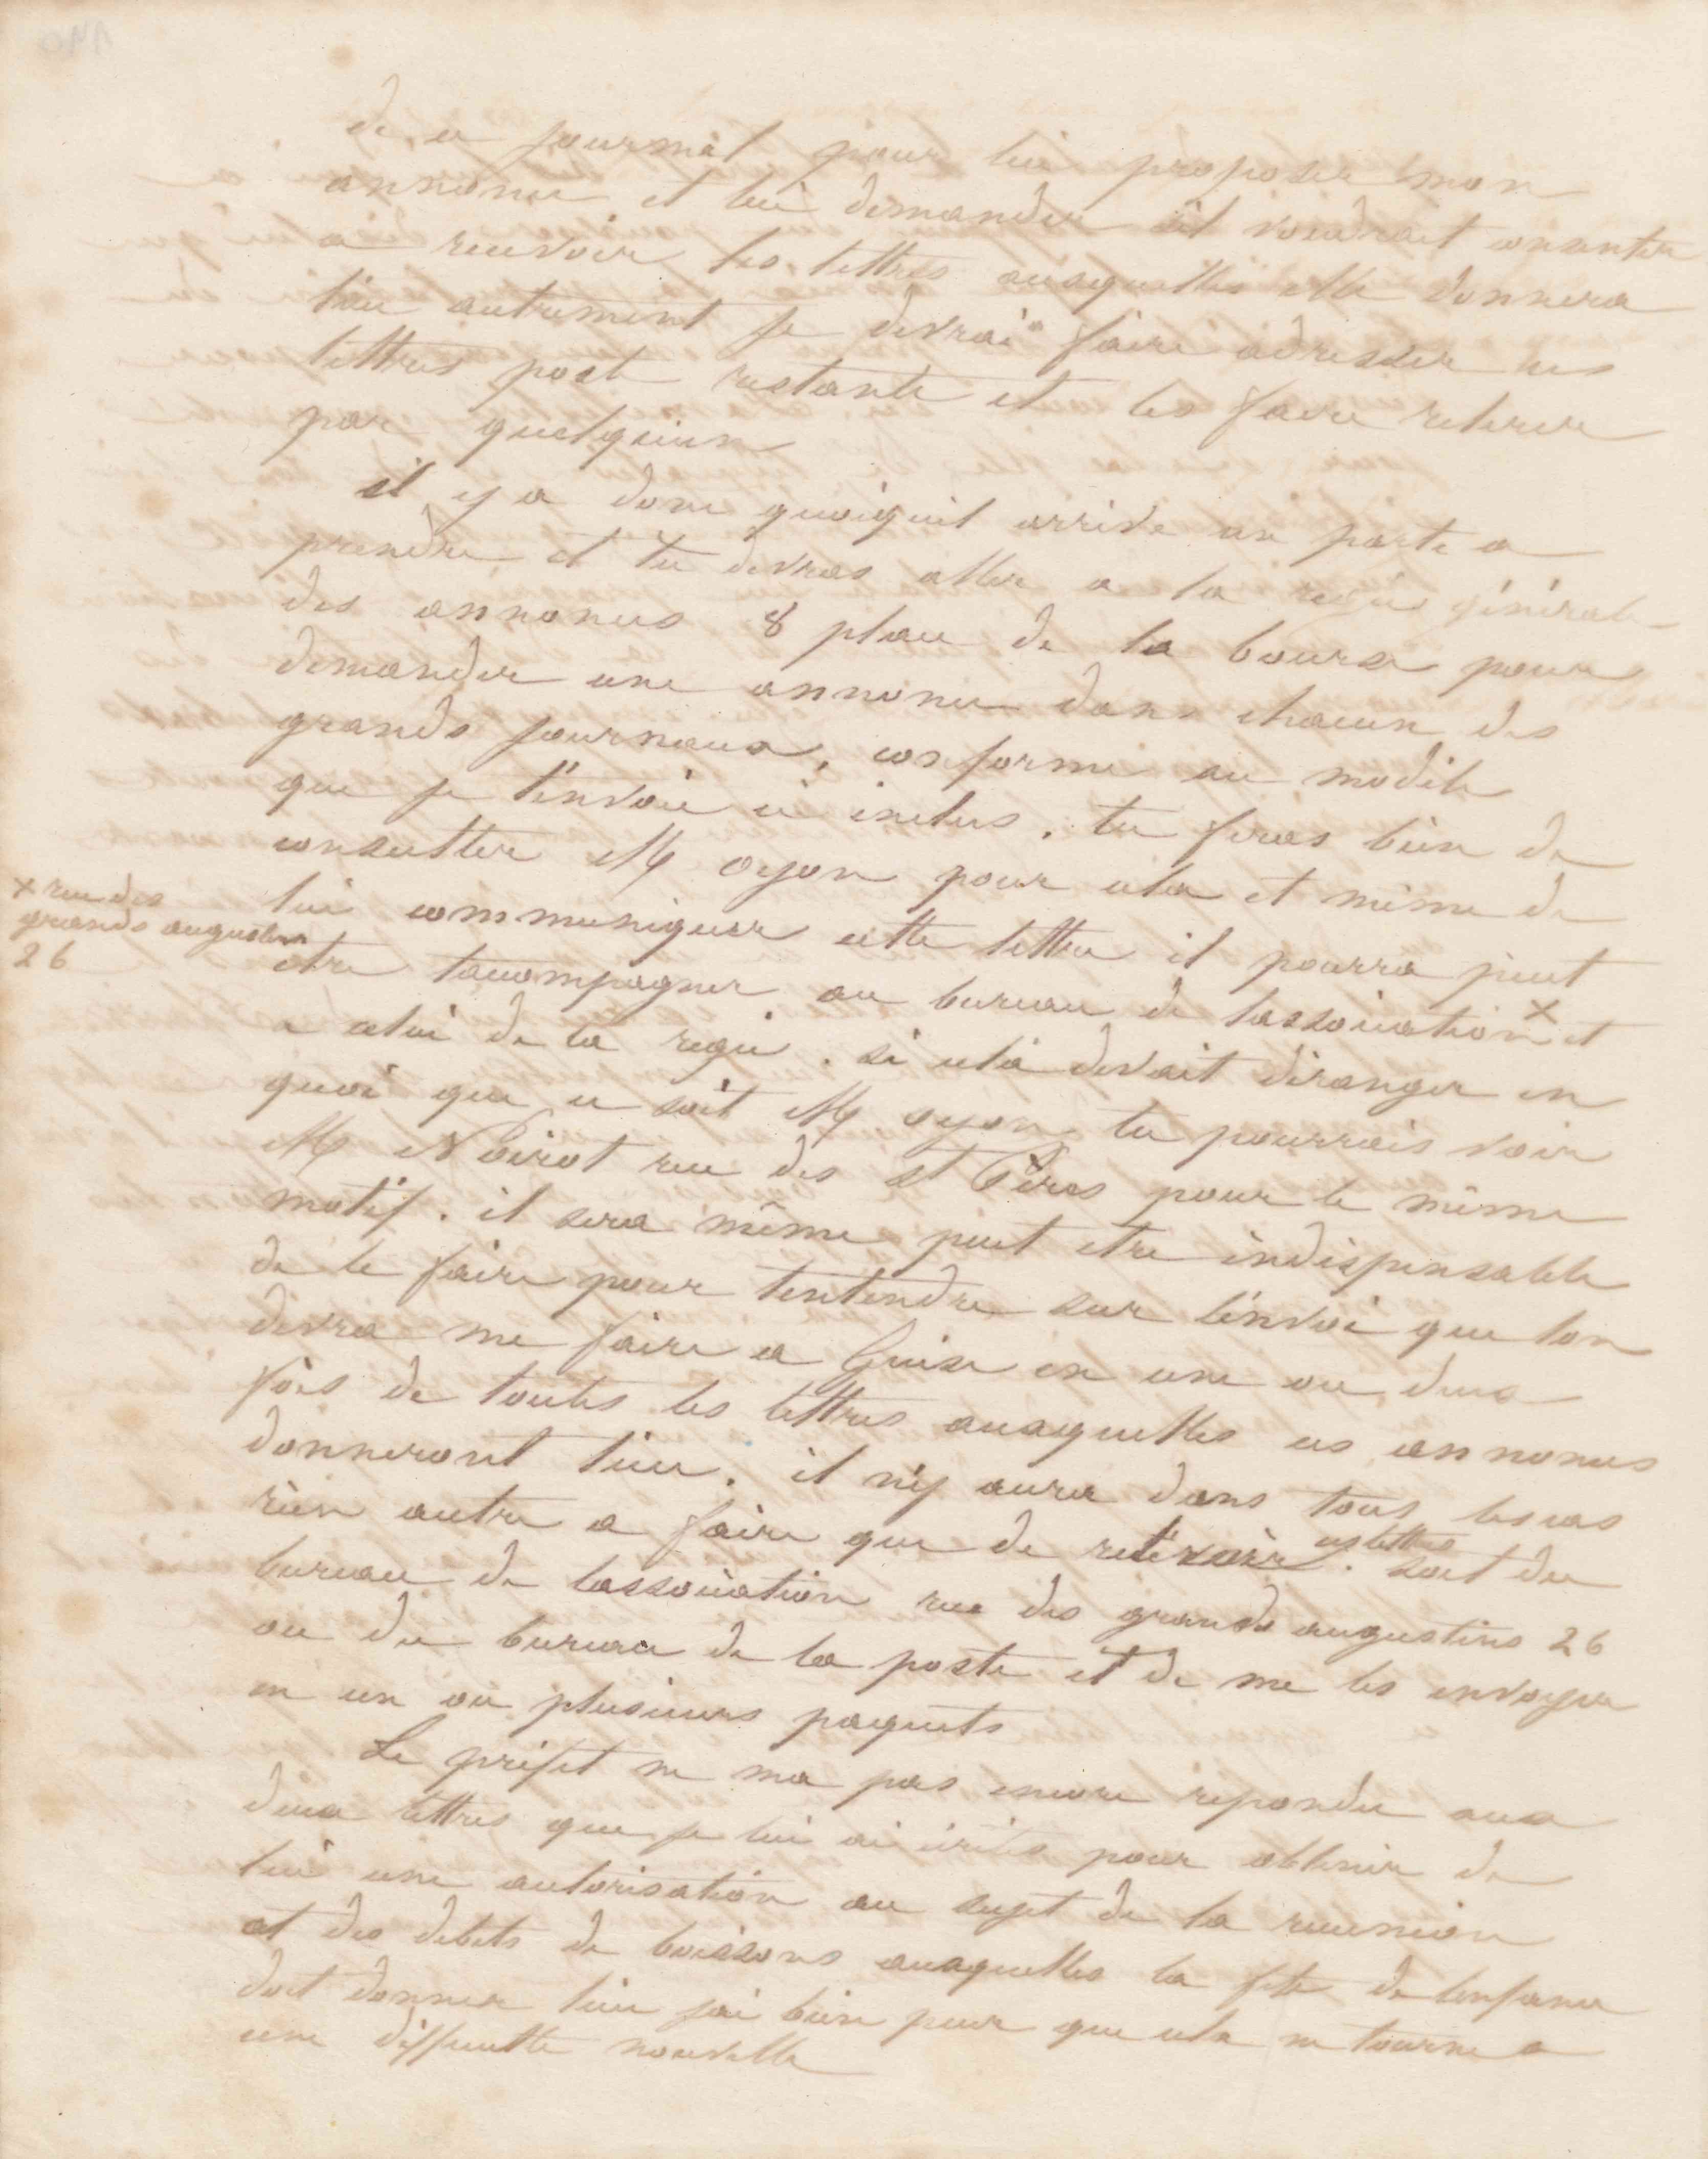 de ce journal pour lui proposer mon
annonce et lui demander s'il voudrait consentir
a recevoir les lettres auxquelles elle donnera
lieu autrement je devrai faire adresser ces
lettres post restante et les faire retirer
par quelqu'un
il y a donc quoiqu'il arrive un parti a
prendre et tu devras aller a la régie générale
des annonces 8 place de la bourse pour
demander une annonce dans chacun des
grands journaux, conforme au modèle
que je t'envoie ci inclus. tu feras bien de
consulter Mr oyon pour cela et même de
lui communiquer cette lettre il pourra peut
etre taccompagner au bureau de lassociation x et
a celui de la régie. si cela devait déranger en
quoi que ce soit Mr oyon tu pourrais voir
Mr Noirot rue des St Pères pour le même
motif. il sera même peut etre indispensable
de le faire pour tentendre sur lenvoi que lon
devra me faire a Guise en une ou deux
fois de toutes les lettres auxquelles ces annonces
donneront lieu. il n'y aura dans tous les cas
rien autre a faire que de retirer ces lettres. soit du
bureau de lassociation rue des grands augustins 26
ou du bureau de la poste et de me les envoyer
en un ou plusieurs paquets
Le préfet ne ma pas encore repondu aux
deux lettres que je lui ai écrites pour obtenir de
lui une autorisation au sujet de la reunion
et des debits de boissons auxquelles la fete de lenfance
doit donner lieu jai bien peur que cela ne tourne a
une difficulté nouvelle
x rue des
grands augustins
26